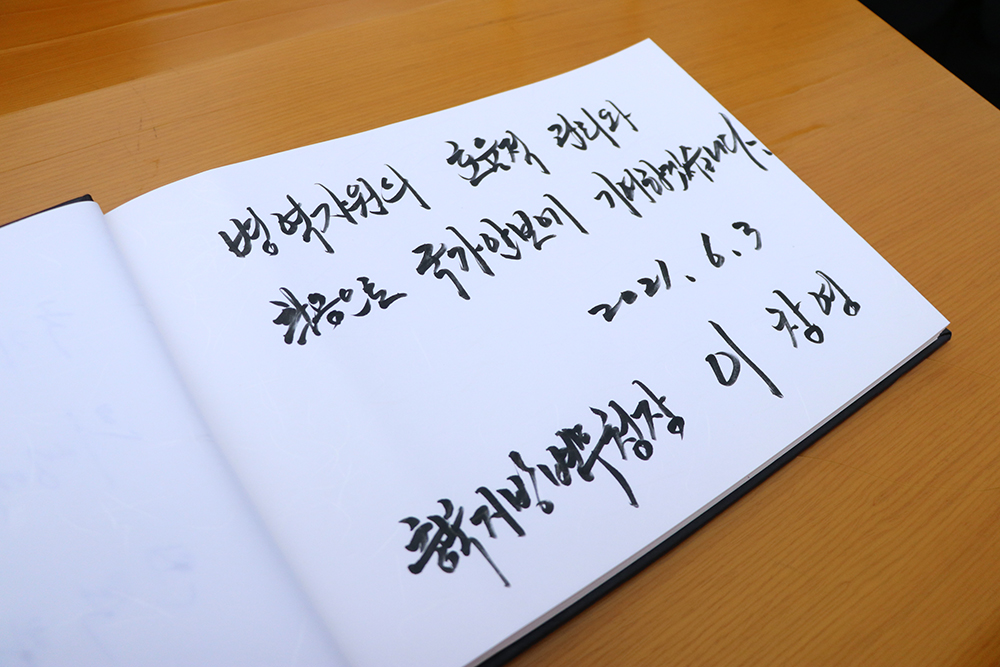 병역자원의 효율적 관리와
활용으로 국가안보에 기여하겠습니다.
2021. 6. 3
충북지방병무청장 이 창영